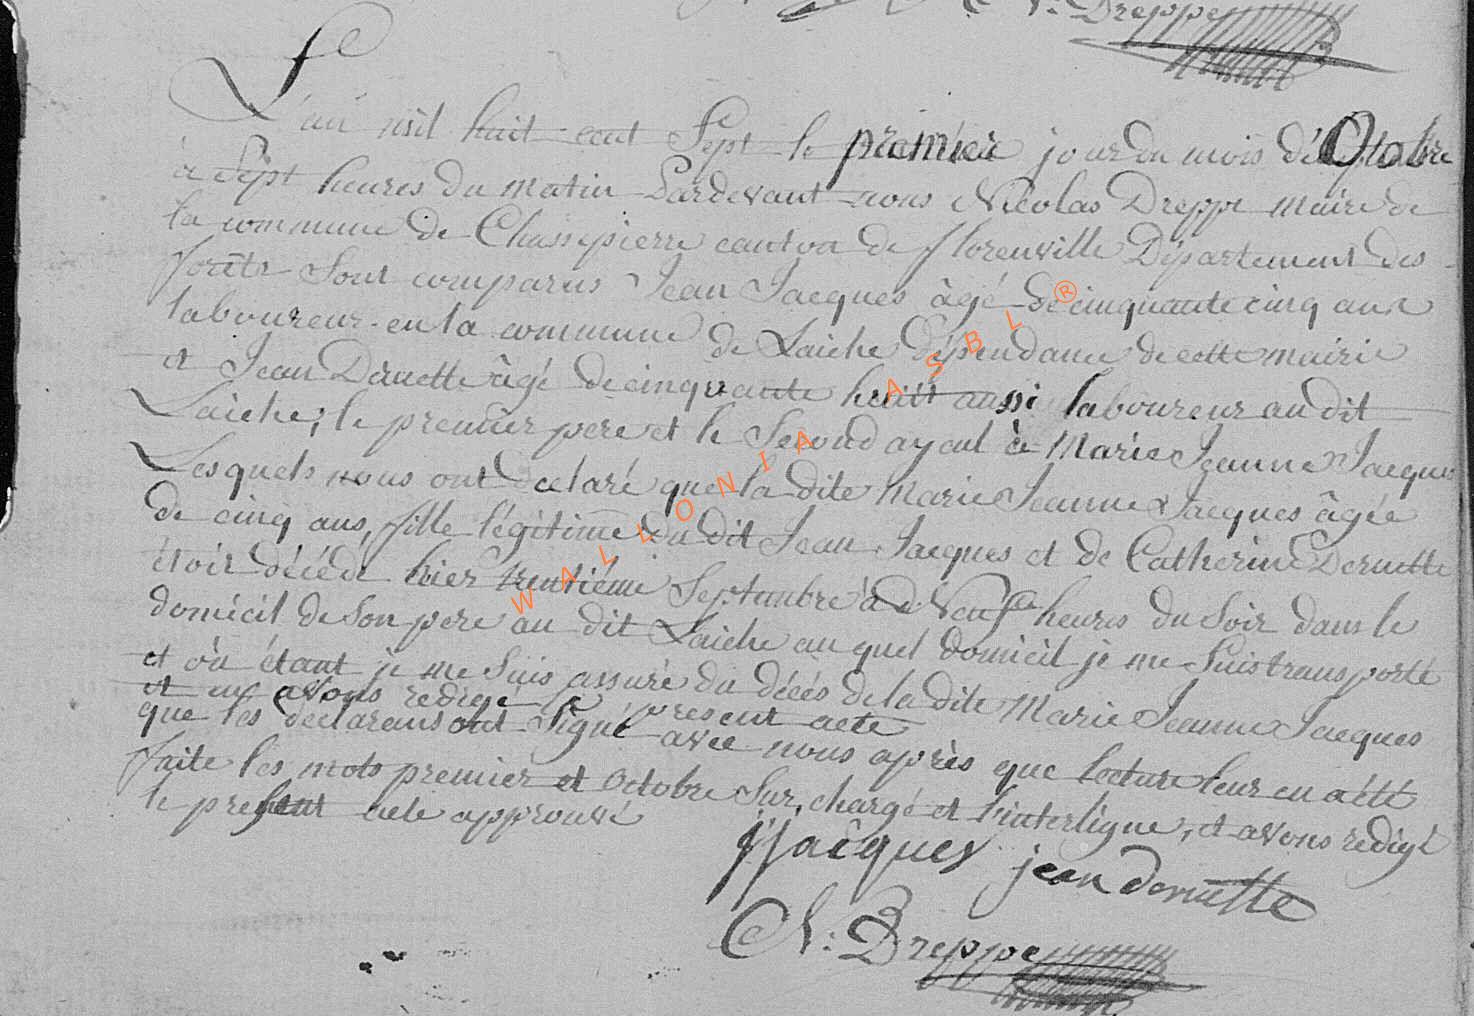 N. Dreppe
L'an mil huit cent Sept le premier jour du mois d'Octobre
à Sept heures du matin Pardevant nous Nicolas Dreppe maire de
la commune de Chassepierre canton de florenville Département des
forêts Sont comparus Jean Jacques âgé de cinquante cinq ans
laboureur en la commune de Laiche dépendance de cette mairie
et Jean Deruette âgé de cinquante huitt aussi laboureur au dit
Laiche, le premier pere et le Second ayeul à Marie Jeanne Jacques
Lesquels nous ont declaré que la dite Marie Jeanne Jacques âgée
de cinq ans, fille légitime du dit Jean Jacques et de Catherine Deruette
étoit décédé hier trentiéme Septembre à neuf heures du Soir dans le
domicil de Son pere au dit Laiche au quel domicil je me Suis transporté
et où étant je me Suis assuré du décés de la dite Marie Jeanne Jacques
et en avons redigé le present acte
que les declarans ont Signé avec nous après que lecture leur en a été
faite les mots premier et Octobre Sur chargé et l'interligne, et avons redigé
le present acte approuvé
jjacques jean deruette
N. Dreppe
WALLONIA ASBL ®